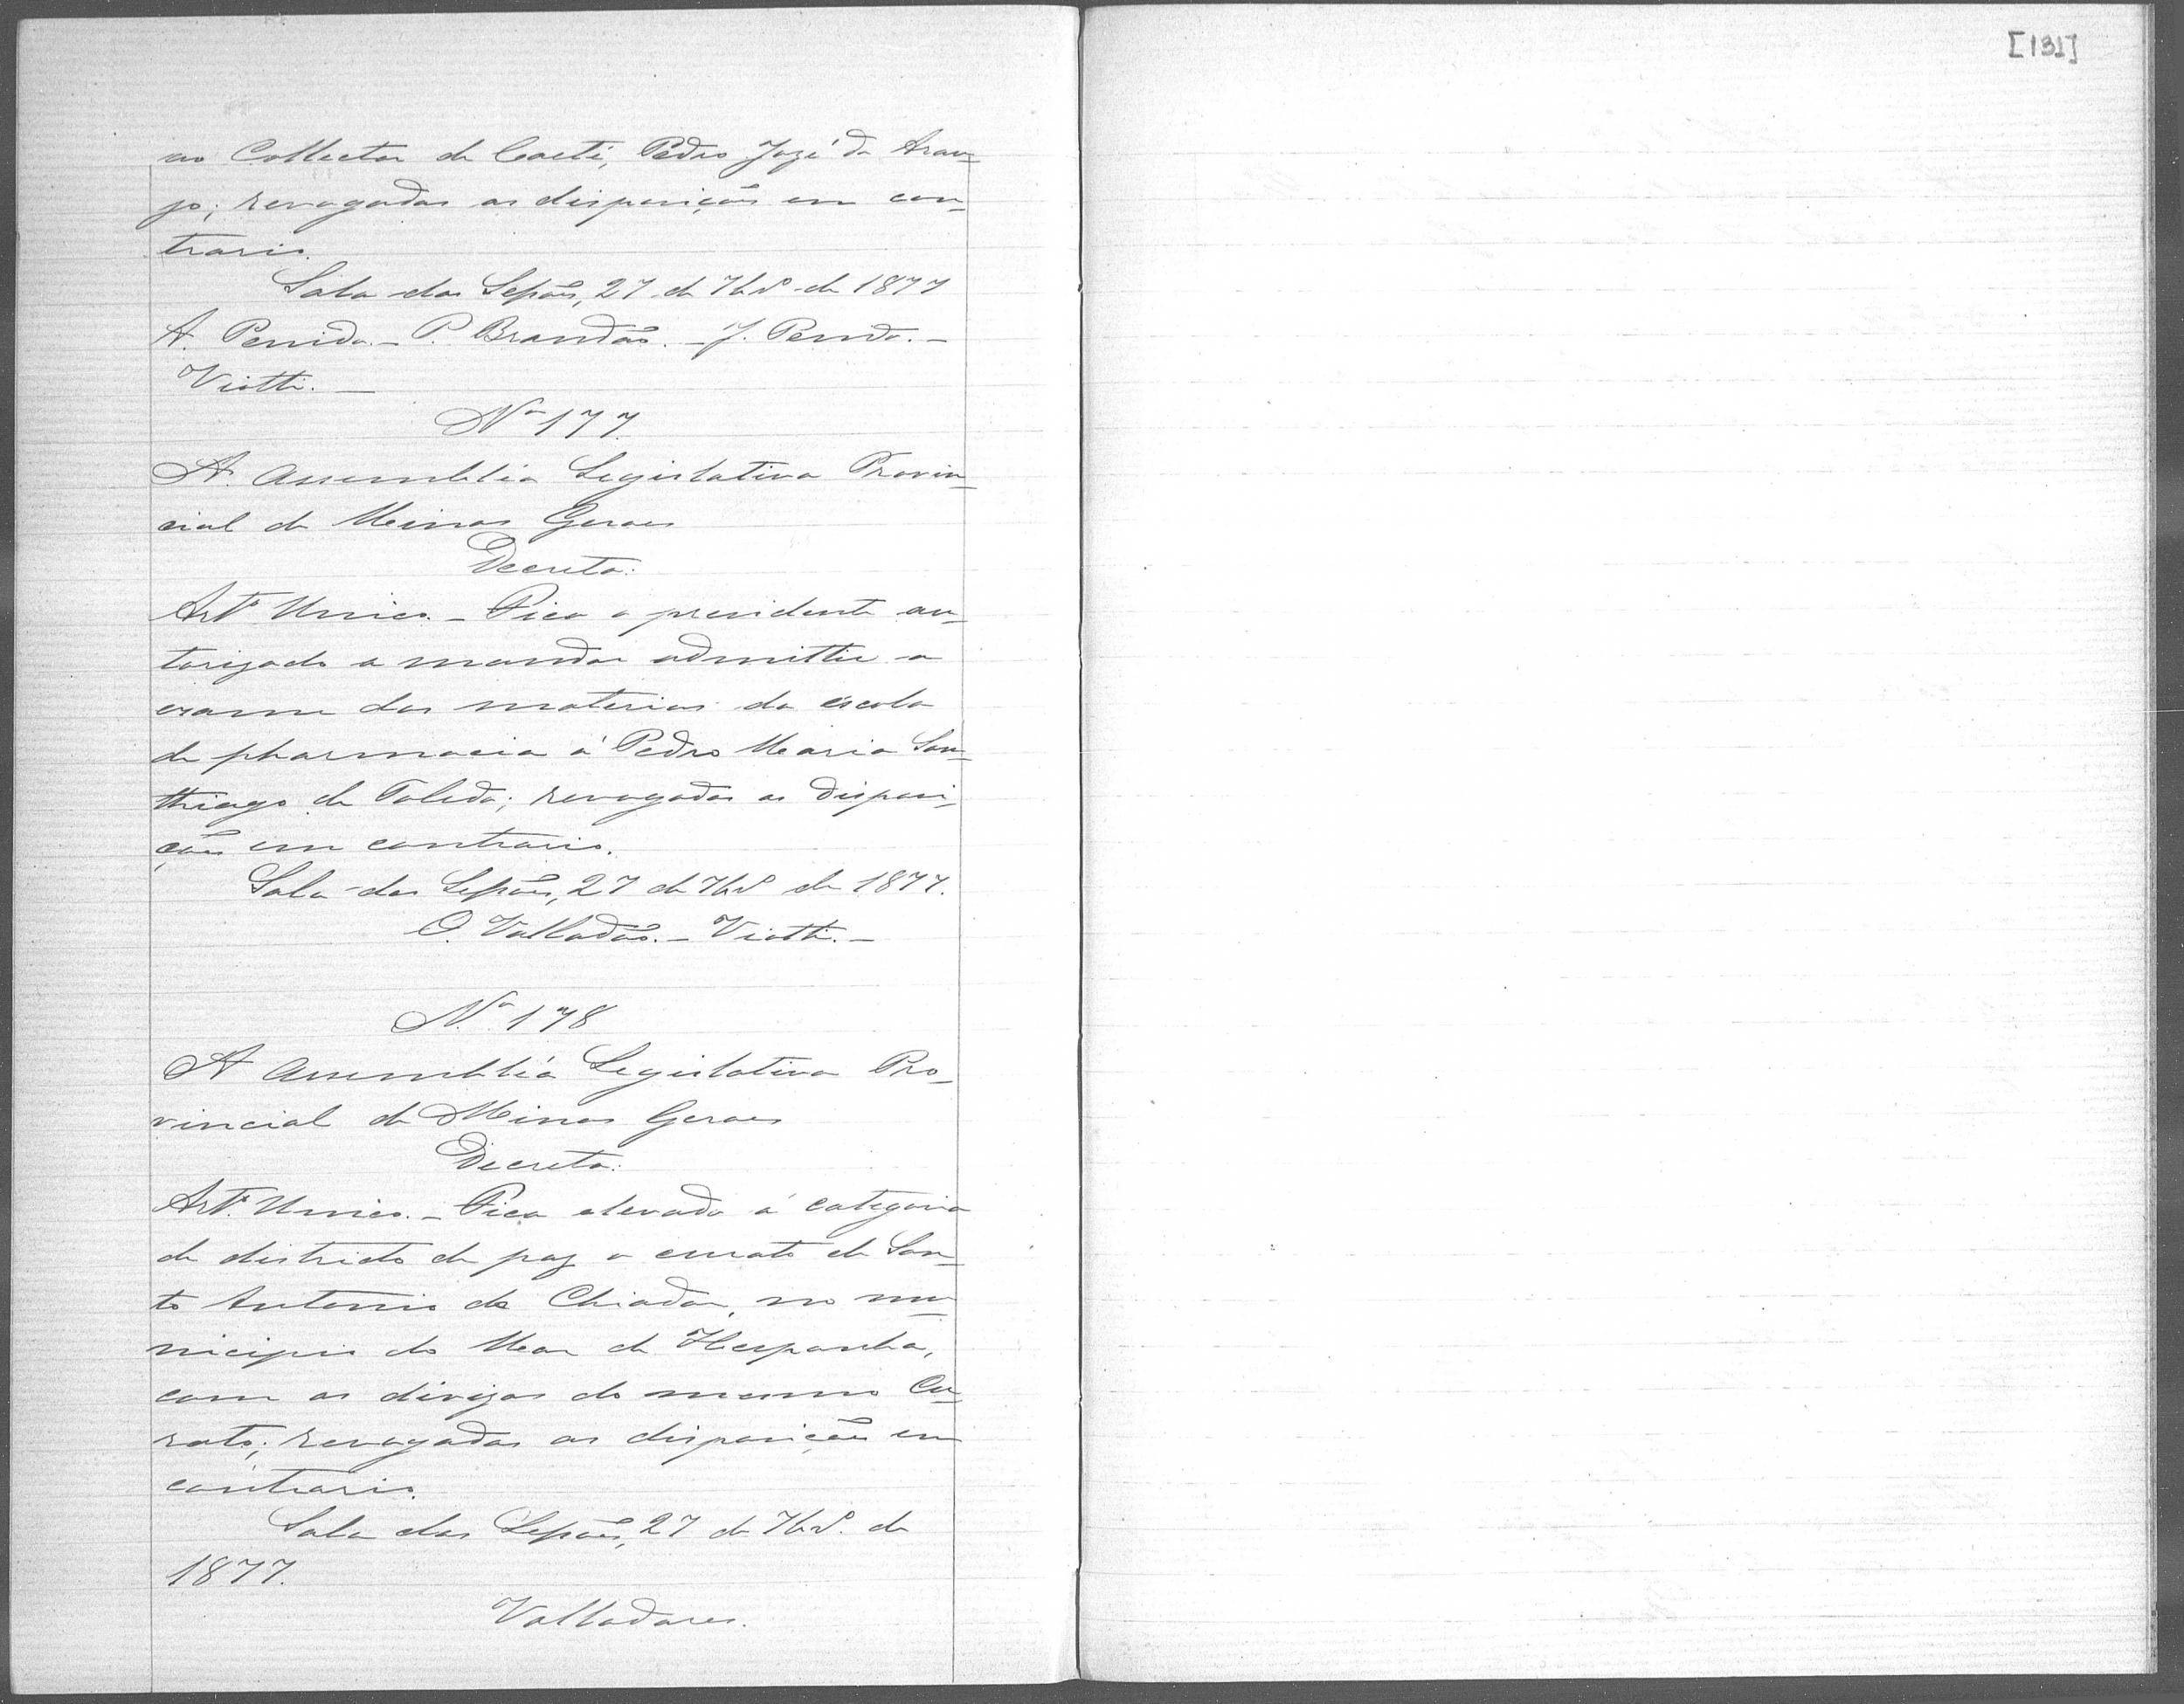 [131]
ao Collector de Caeté, Pedro Jozé de Arau-
jo; revogadas as disposições em con-
trario.
Sala das Sessões, 27 de 7br.º de 1877
A. Penido. - P. Brandão. - J. Penido. -
Viotti. -
Nº 177.
A Assembléa Legislativa Provin-
cial de Minas Geraes
Decreta:
Artº Unico. - Fica o presidente au-
torizado a mandar admittir a
exame das materias da escola
de pharmacia á Pedro Maria San-
thiago de Toledo; revogadas as disposi-
ções em contrario.
Sala das Sessões, 27 de 7br.º de 1877.
O. Valladão. - Viotti. -
Nº 178
A Assembléa Legislativa Pro-
vincial de Minas Geraes
Decreta:
Artº Unico. - Fica elevado á categoria
de districto de paz o curato de San-
to Antonio do Chiador, no mu-
nicipio do Mar de Hespanha,
com as divizas do mesmo Cu-
rato; revogadas as disposições em
contrario.
Sala das Sessões, 27 de 7br.º de
1877.
Valladares.